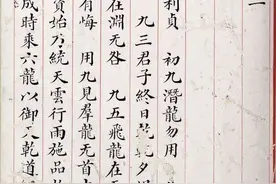 利貞 初九潛龍勿用
九三君子終日乾乾夕
在淵无咎 九五飛龍在
有悔 用九見羣龍无首
資始乃統天雲行雨施品
成時乘六龍以御天乾道